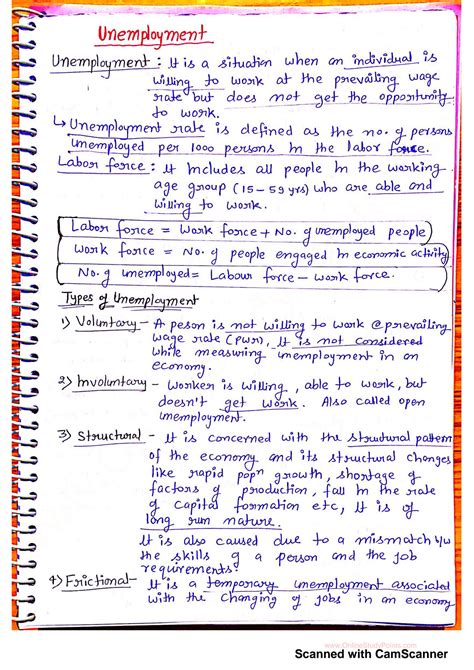 Unemployment
Unemployment : It is a situation when an individual is
willing to work at the prevailing wage
rate but does not get the opportunity
to work.
↳ Unemployment rate is defined as the no. of persons
unemployed per 1000 persons in the labor force.
Labor force : It includes all people in the working
age group (15-59 yrs) who are able and
willing to work.
Labor force = Work force + No. of unemployed people
Work force = No. of people engaged in economic activity
No. of unemployed = Labour force - work force.
Types of Unemployment
1) Voluntary - A peson is not willing to work @ prevailing
wage rate (PWR), It is not considered
while measuring unemployment in an
economy.
2) Involuntary - Worker is willing, able to work, but
doesn't get work. Also called open
unemployment.
3) Structural - It is concerned with the structural pattern
of the economy and its structural changes
like rapid popn growth, shortage of
factors of production, fall in the rate
of capital formation etc, It is of
long run nature.
It is also caused due to a mismatch b/w
the skills of a person and the job
requirements.
4) Frictional - It is a temporary unemployment associated
with the changing of jobs in an economy
www.OnlineStudyPoints.com
Scanned with CamScanner